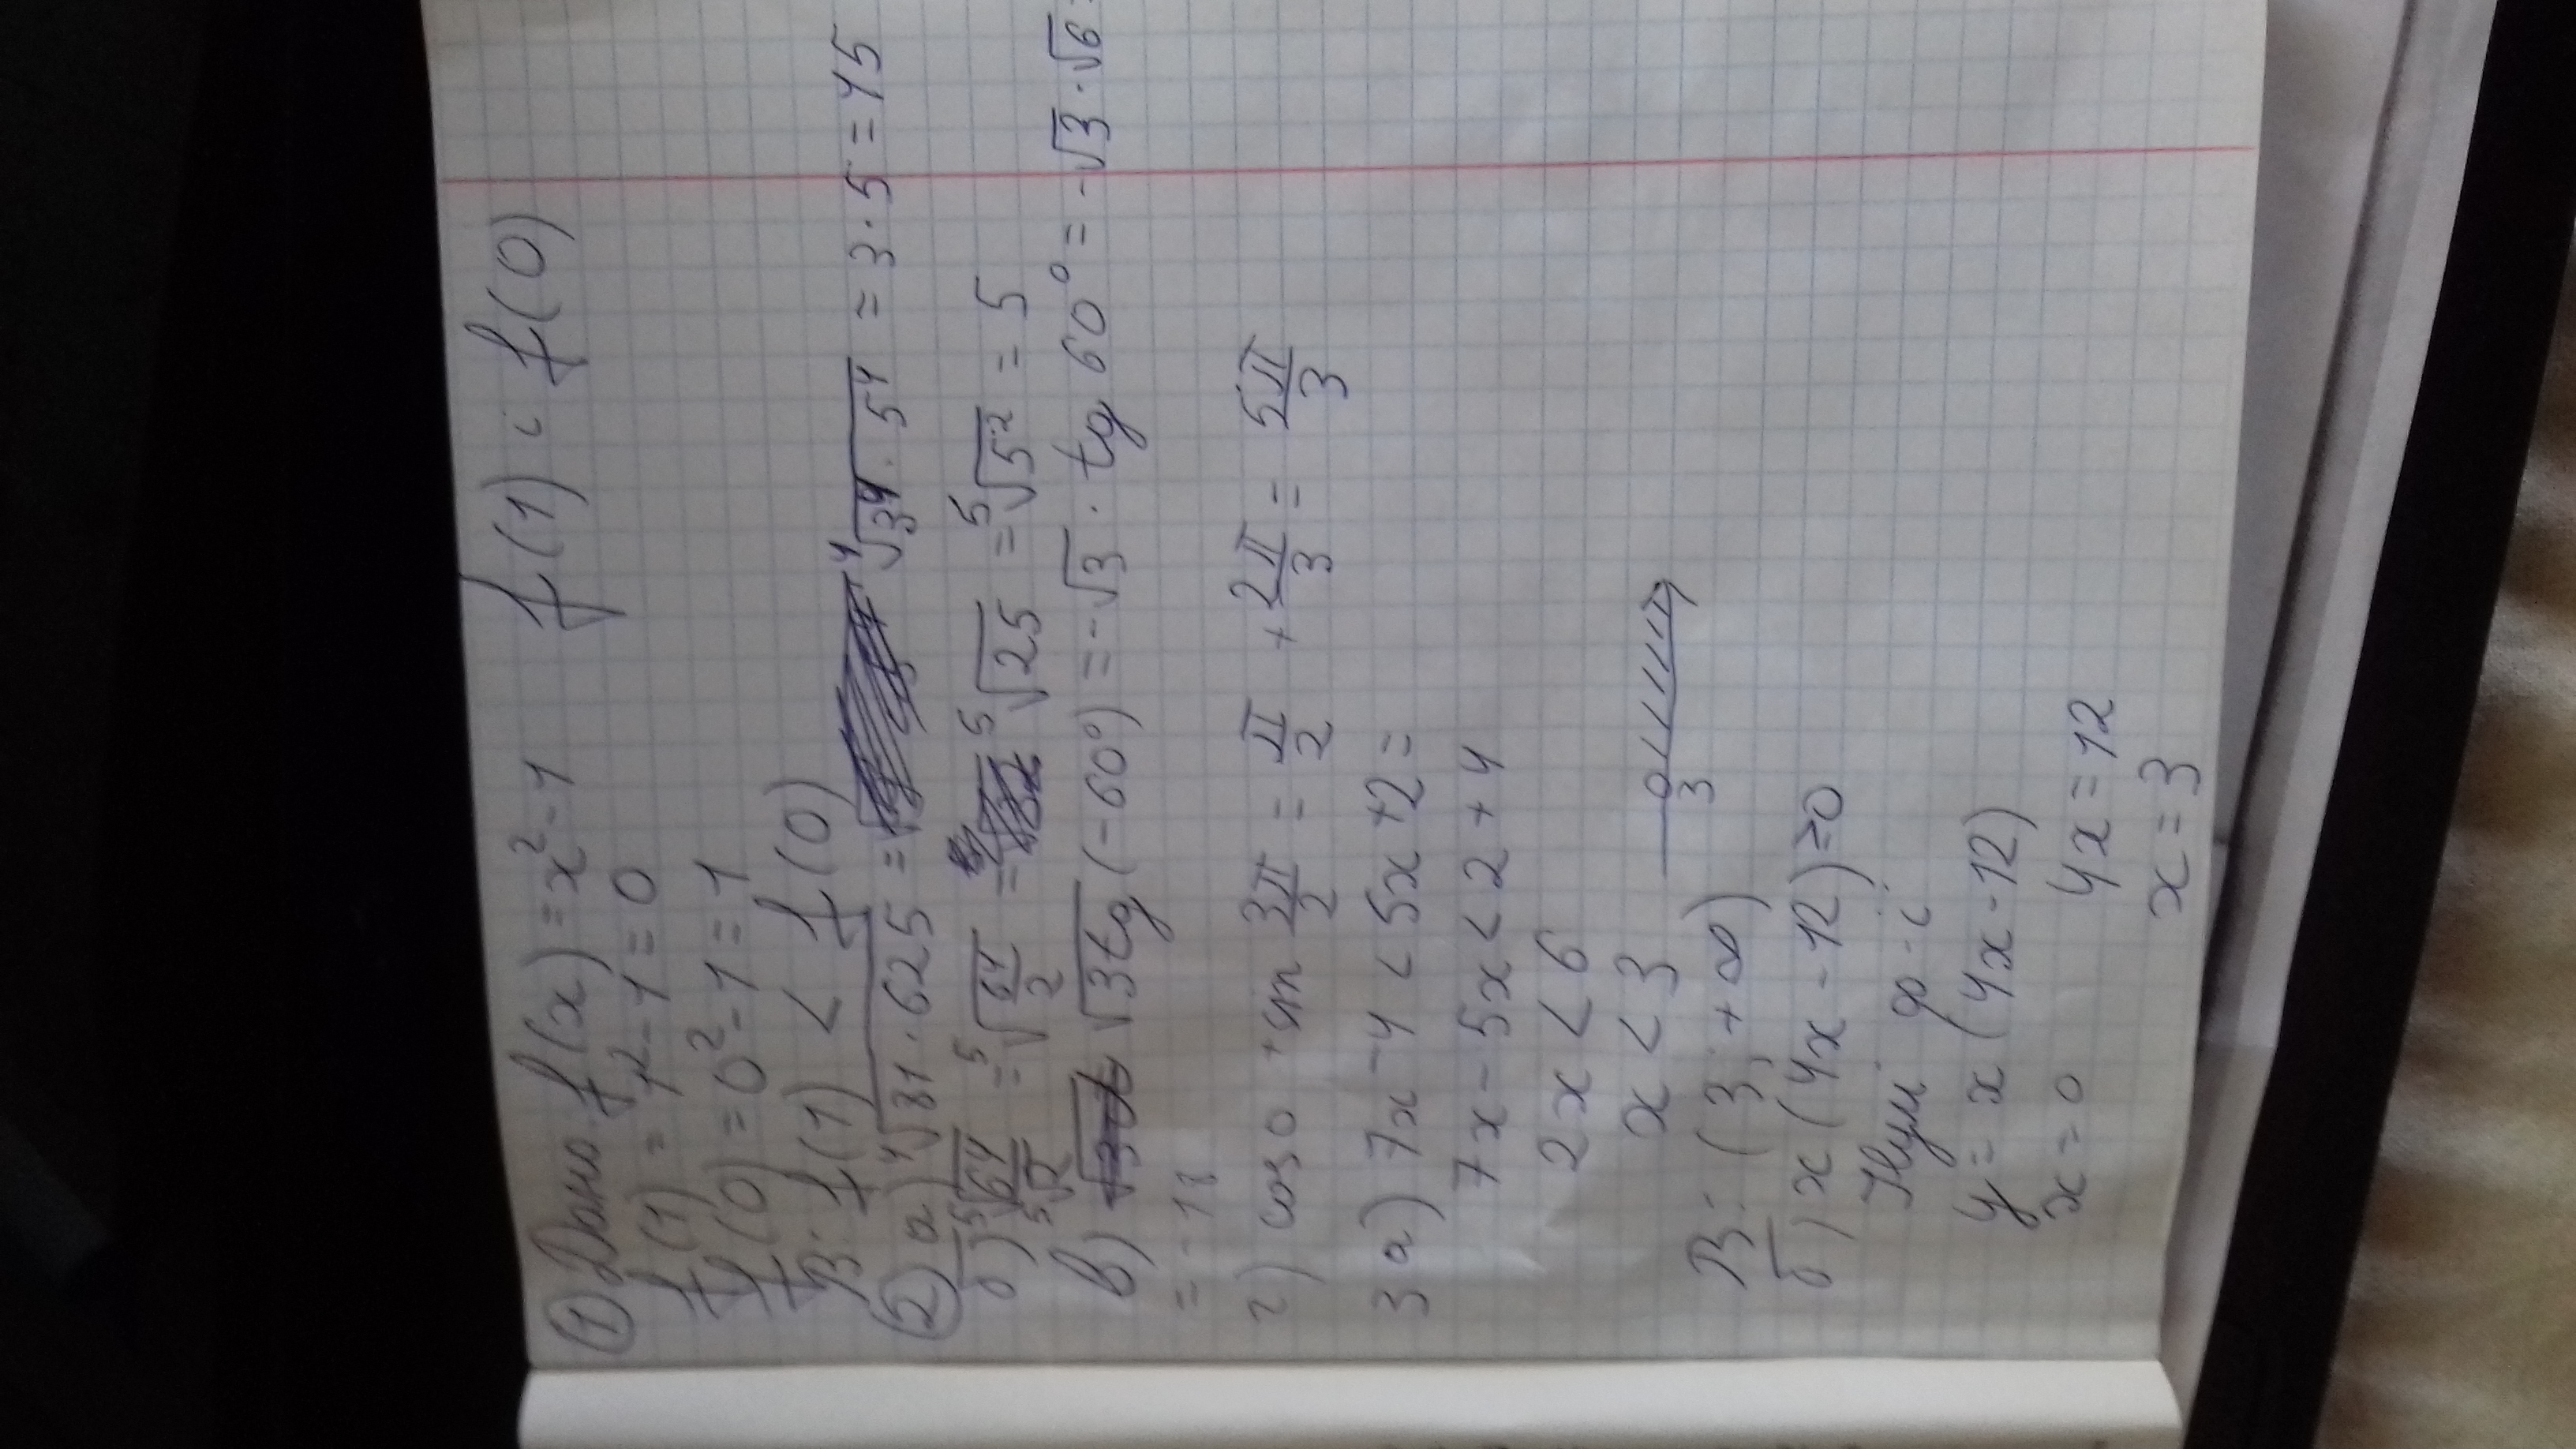 ① Дано f(x) = x² - 1    f(1) і f(0)
f(1) = 1² - 1 = 0
f(0) = 0² - 1 = 1
В: f(1) < f(0)
② а) ⁴√81·625 = ⁴√3⁴·5⁴ = 3·5 = 15
б) ⁵√64/⁵√2 = ⁵√(64/2) = ⁵√25 = ⁵√5² = 5
в) √3tg(-60°) = -√3 · tg 60° = -√3 · √6 =
= -18
г) cos 0 + sin 3π/2 = π/2 + 2π/3 = 5π/3
3 а) 7x - 4 < 5x + 2 =
7x - 5x < 2 + 4
2x < 6
x < 3
3
В: (3; +∞)
б) x(4x - 12) ≥ 0
Нулі ф-і
y = x(4x - 12)
x = 0    4x = 12
x = 3